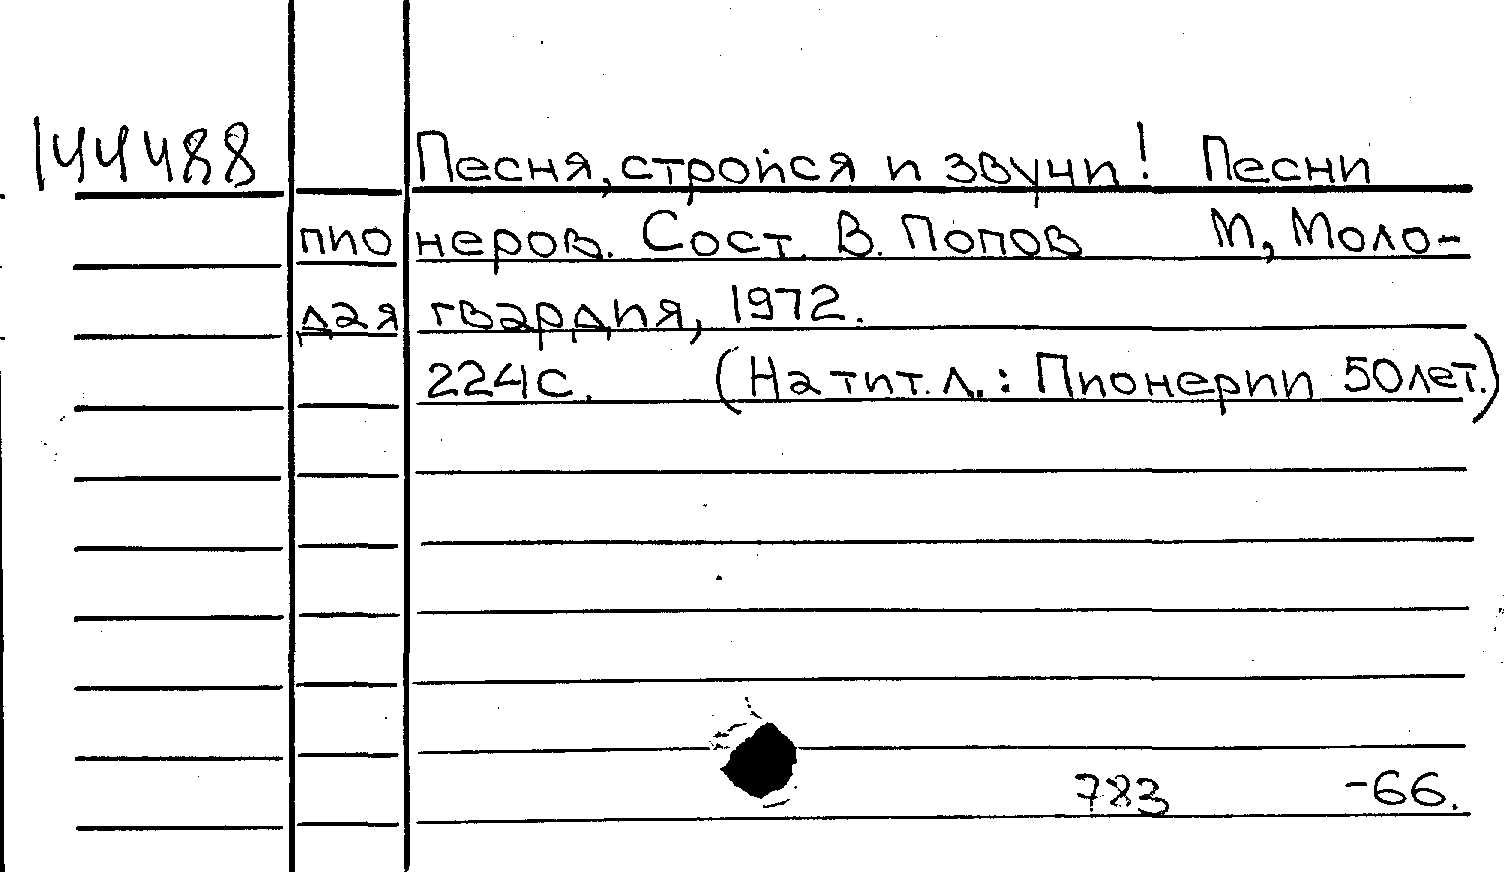 144488 Песня, стройся и звучи! Песни
пионеров. Сост. В. Попов М, Моло-
дая гвардия, 1972.
224с. (На тит. л.: Пионерии 50 лет.)
783 -66.